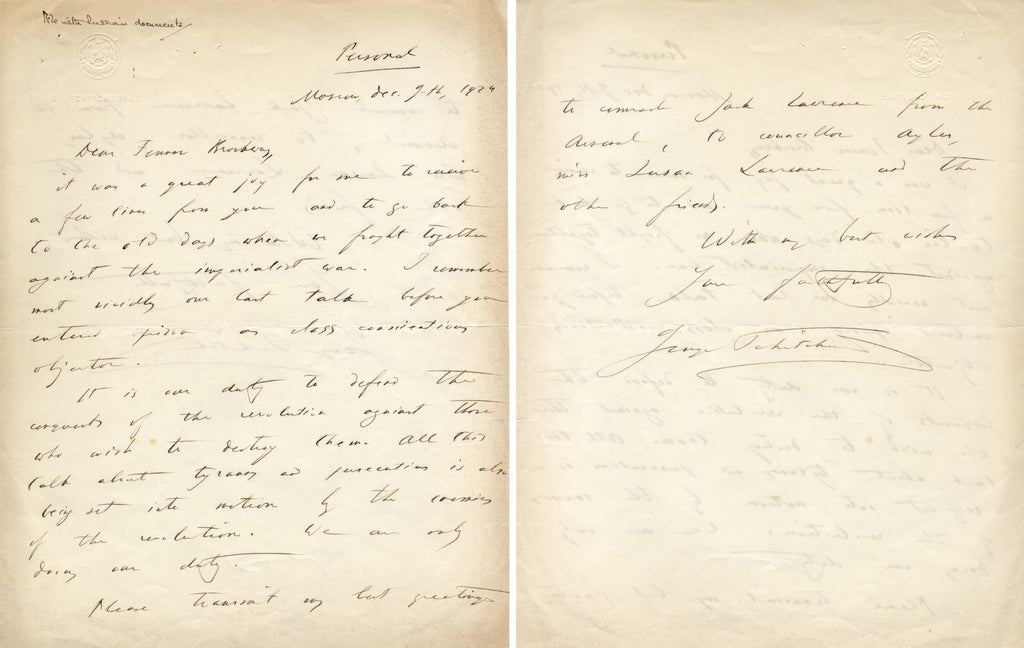 File with Russian documents
Personal
Moscow, Dec. 9-th, 1924
Dear Fenner Brockway,
it was a great joy for me to receive
a few lines from you and to go back
to the old days when we fought together
against the imperialist war. I remember
most vividly our last talk before you
entered prison as class conscientious
objector.
It is our duty to defend the
conquests of the revolution against those
who wish to destroy them. All this
talk about tyranny and persecutions is also
being set into motion by the enemies
of the revolution. We are only
doing our duty.
Please transmit my best greetings
to comrade Jack Lawrence from the
Arsenal, to councillor Ayles,
miss Susan Lawrence and the
other friends.
With my best wishes
Yours faithfully
George Tchitcherin